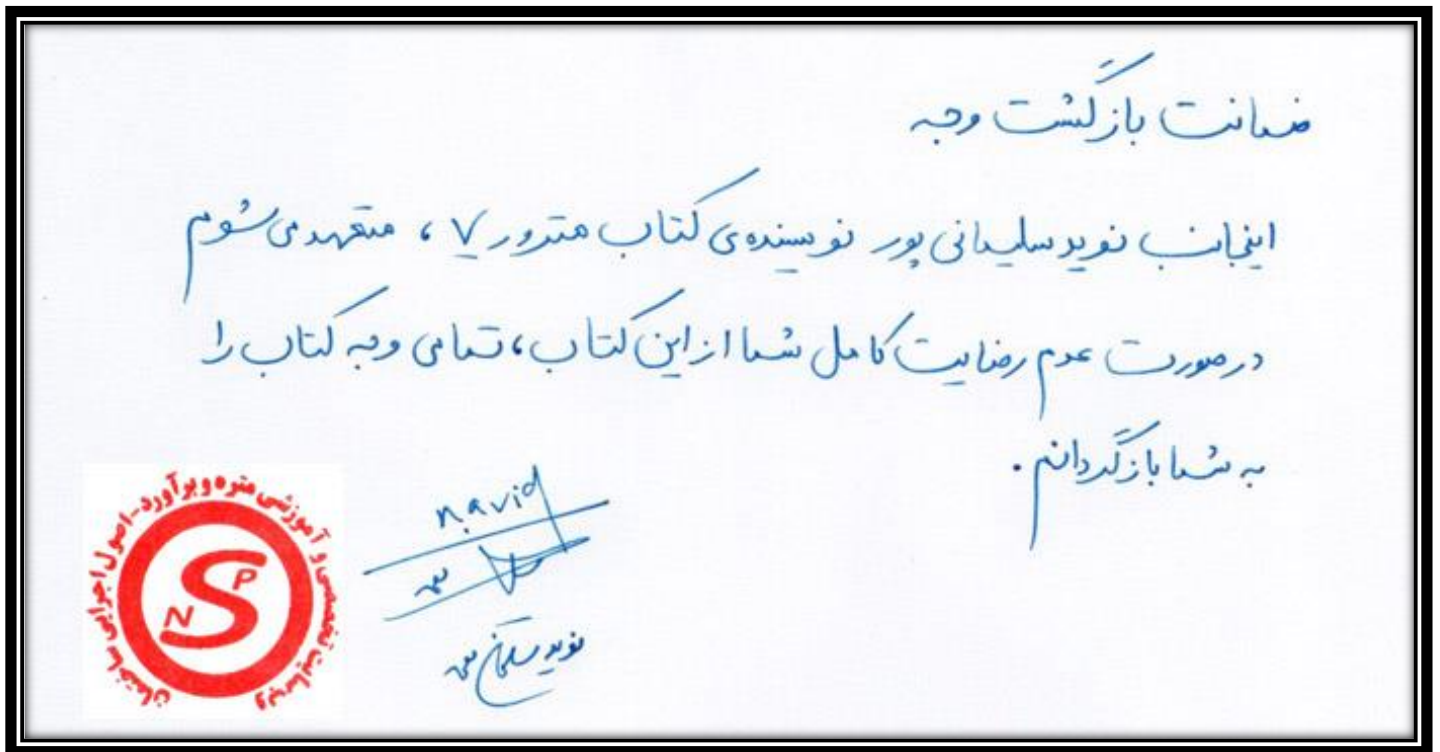 ضمانت بازگشت وجه
اینجانب نوید سلیمانی پور نویسنده‌ی کتاب مترور ۷ ، متعهد می شوم
در صورت عدم رضایت کامل شما از این کتاب، تمامی وجه کتاب را
به شما بازگردانم.
navid
نوید سلیمانی پور
وب سایت تخصصی و آموزشی متره و برآورد-اصول اجرایی ساختمان
N S P